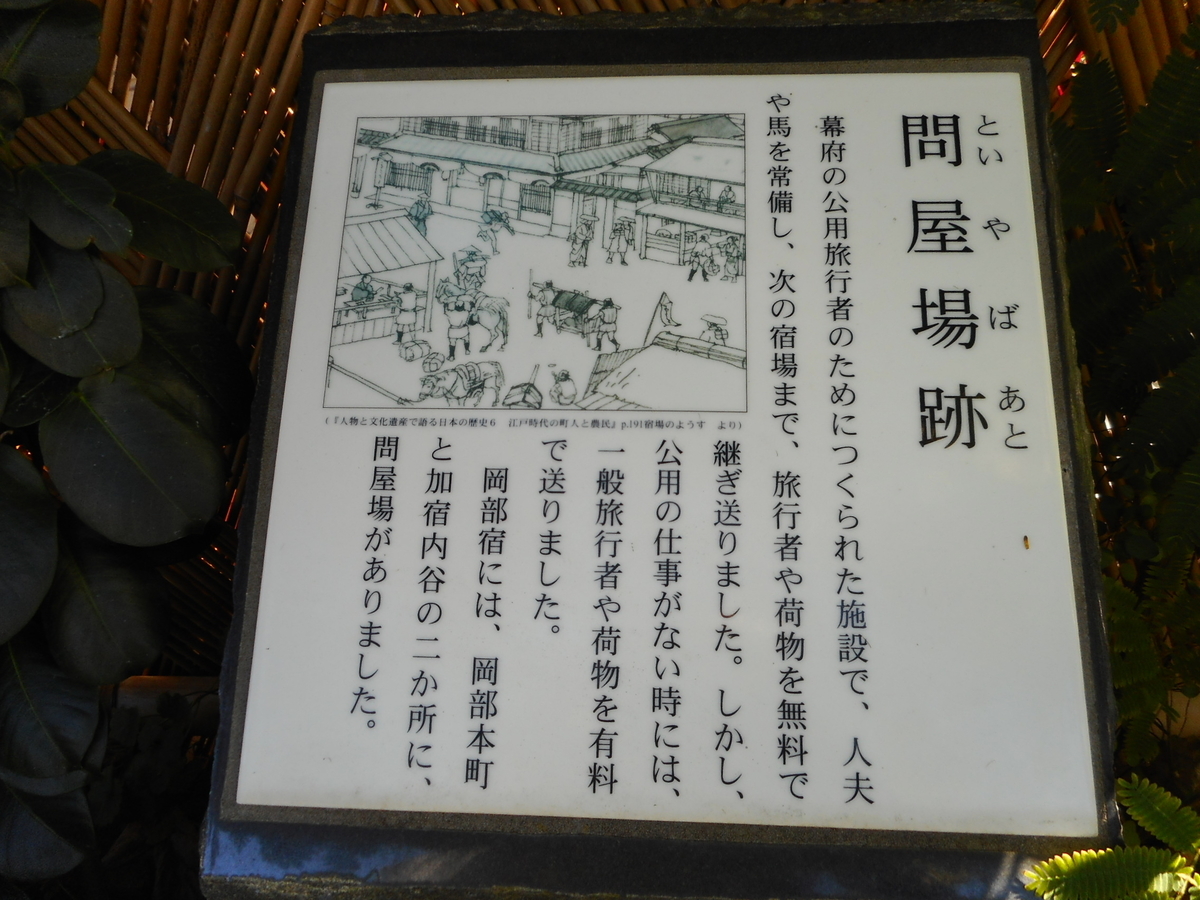 問屋場跡
といやばあと
幕府の公用旅行者のためにつくられた施設で、人夫
や馬を常備し、次の宿場まで、旅行者や荷物を無料で
継ぎ送りました。しかし、
公用の仕事がない時には、
一般旅行者や荷物を有料
で送りました。
岡部宿には、岡部本町
と加宿内谷の二か所に、
問屋場がありました。
(『人物と文化遺産で語る日本の歴史6　江戸時代の町人と農民』p.191宿場のようす　より)